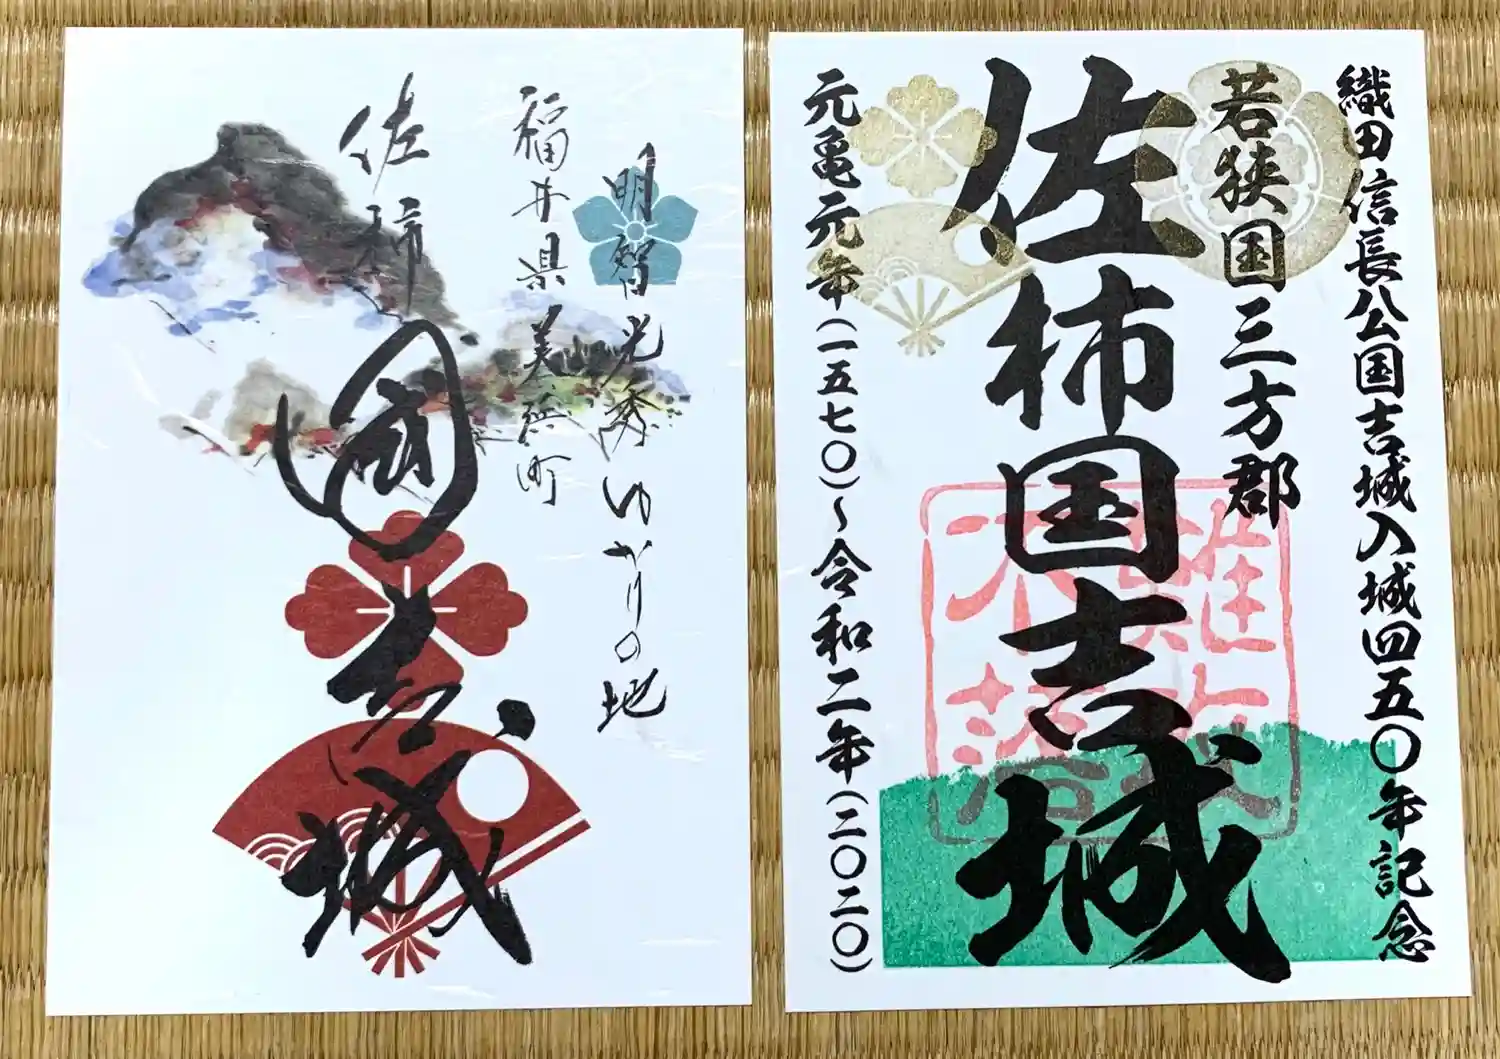 明智光秀ゆかりの地
福井県美浜町
佐柿
國吉城
織田信長公国吉城入城四五〇年記念
若狭国三方郡
佐柿国吉城
元亀元年(一五七〇)〜令和二年(二〇二〇)
難攻
不落